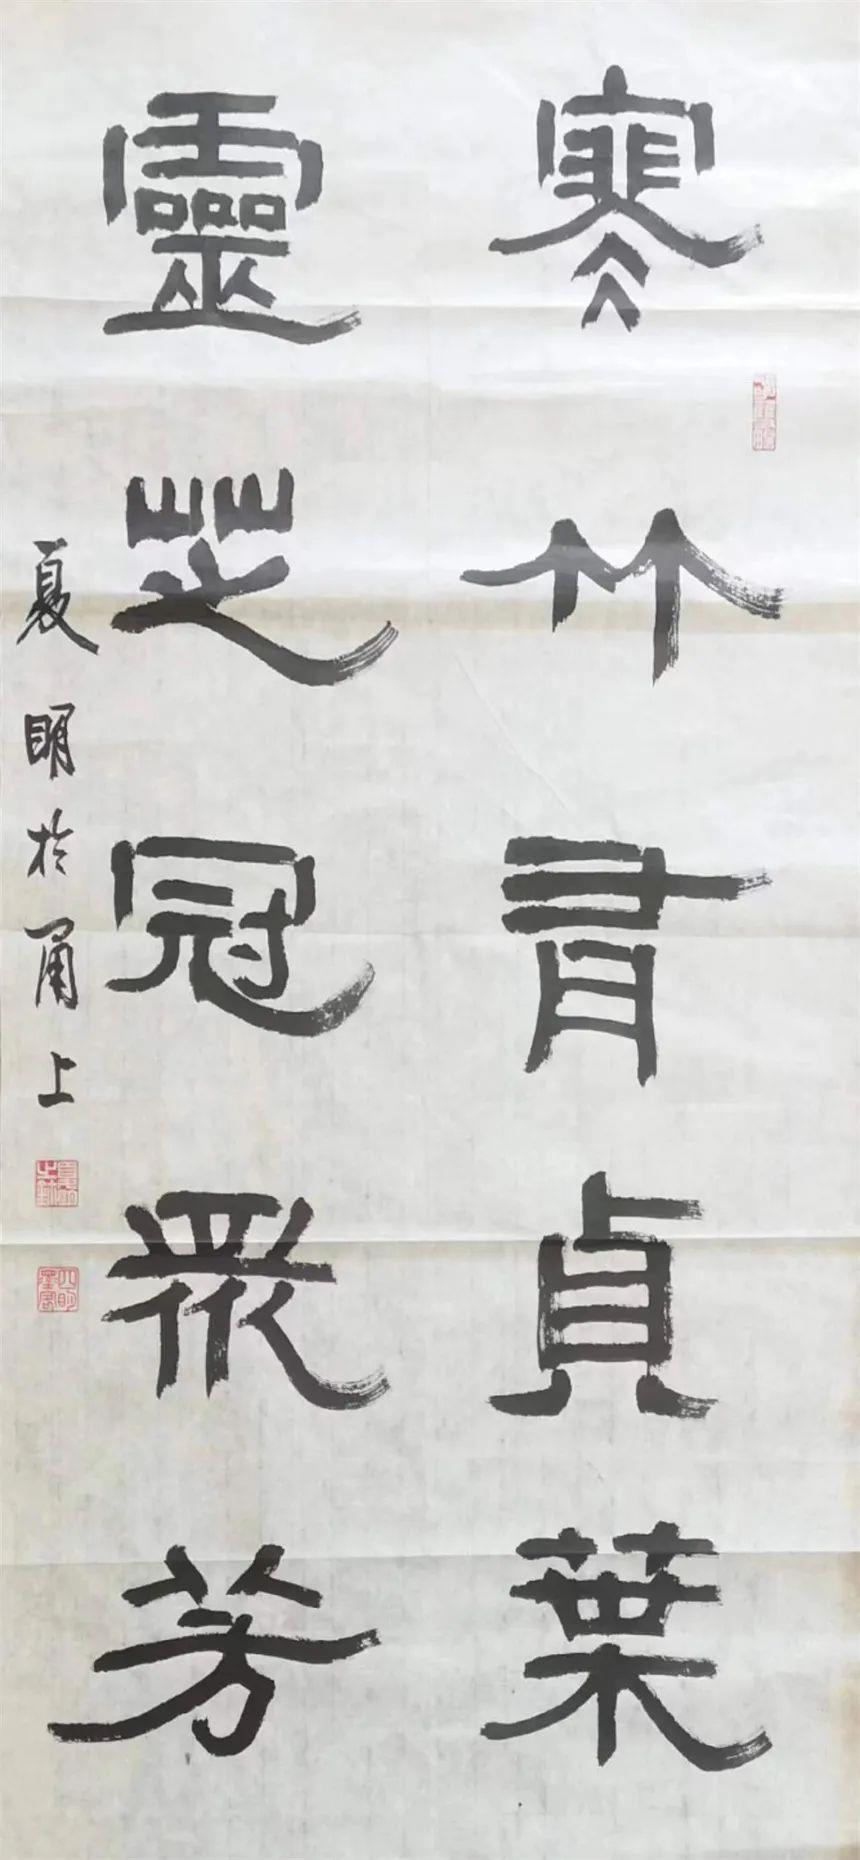 寒竹有貞葉
靈芝冠眾芳
夏明於甬上